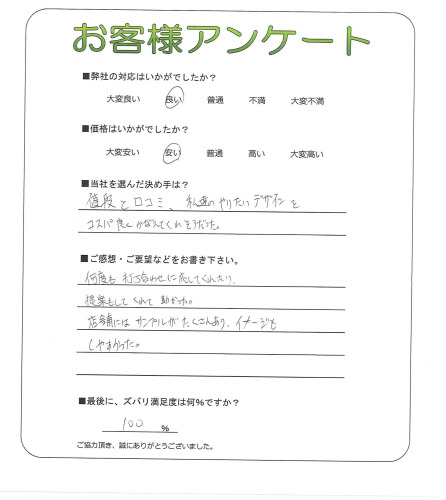 お客様アンケート
■弊社の対応はいかがでしたか？
大変良い 良い 普通 不満 大変不満
■価格はいかがでしたか？
大変安い 安い 普通 高い 大変高い
■当社を選んだ決め手は？
値段と口コミ、私達のやりたいデザインを
コスパ良くかなえてくれそうだった。
■ご感想・ご要望などをお書き下さい。
何度も打ち合わせに応じてくれたり、
提案もしてくれて助かった。
店舗にはサンプルがたくさんあり、イメージも
しやすかった。
■最後に、ズバリ満足度は何％ですか？
100 ％
ご協力頂き、誠にありがとうございました。